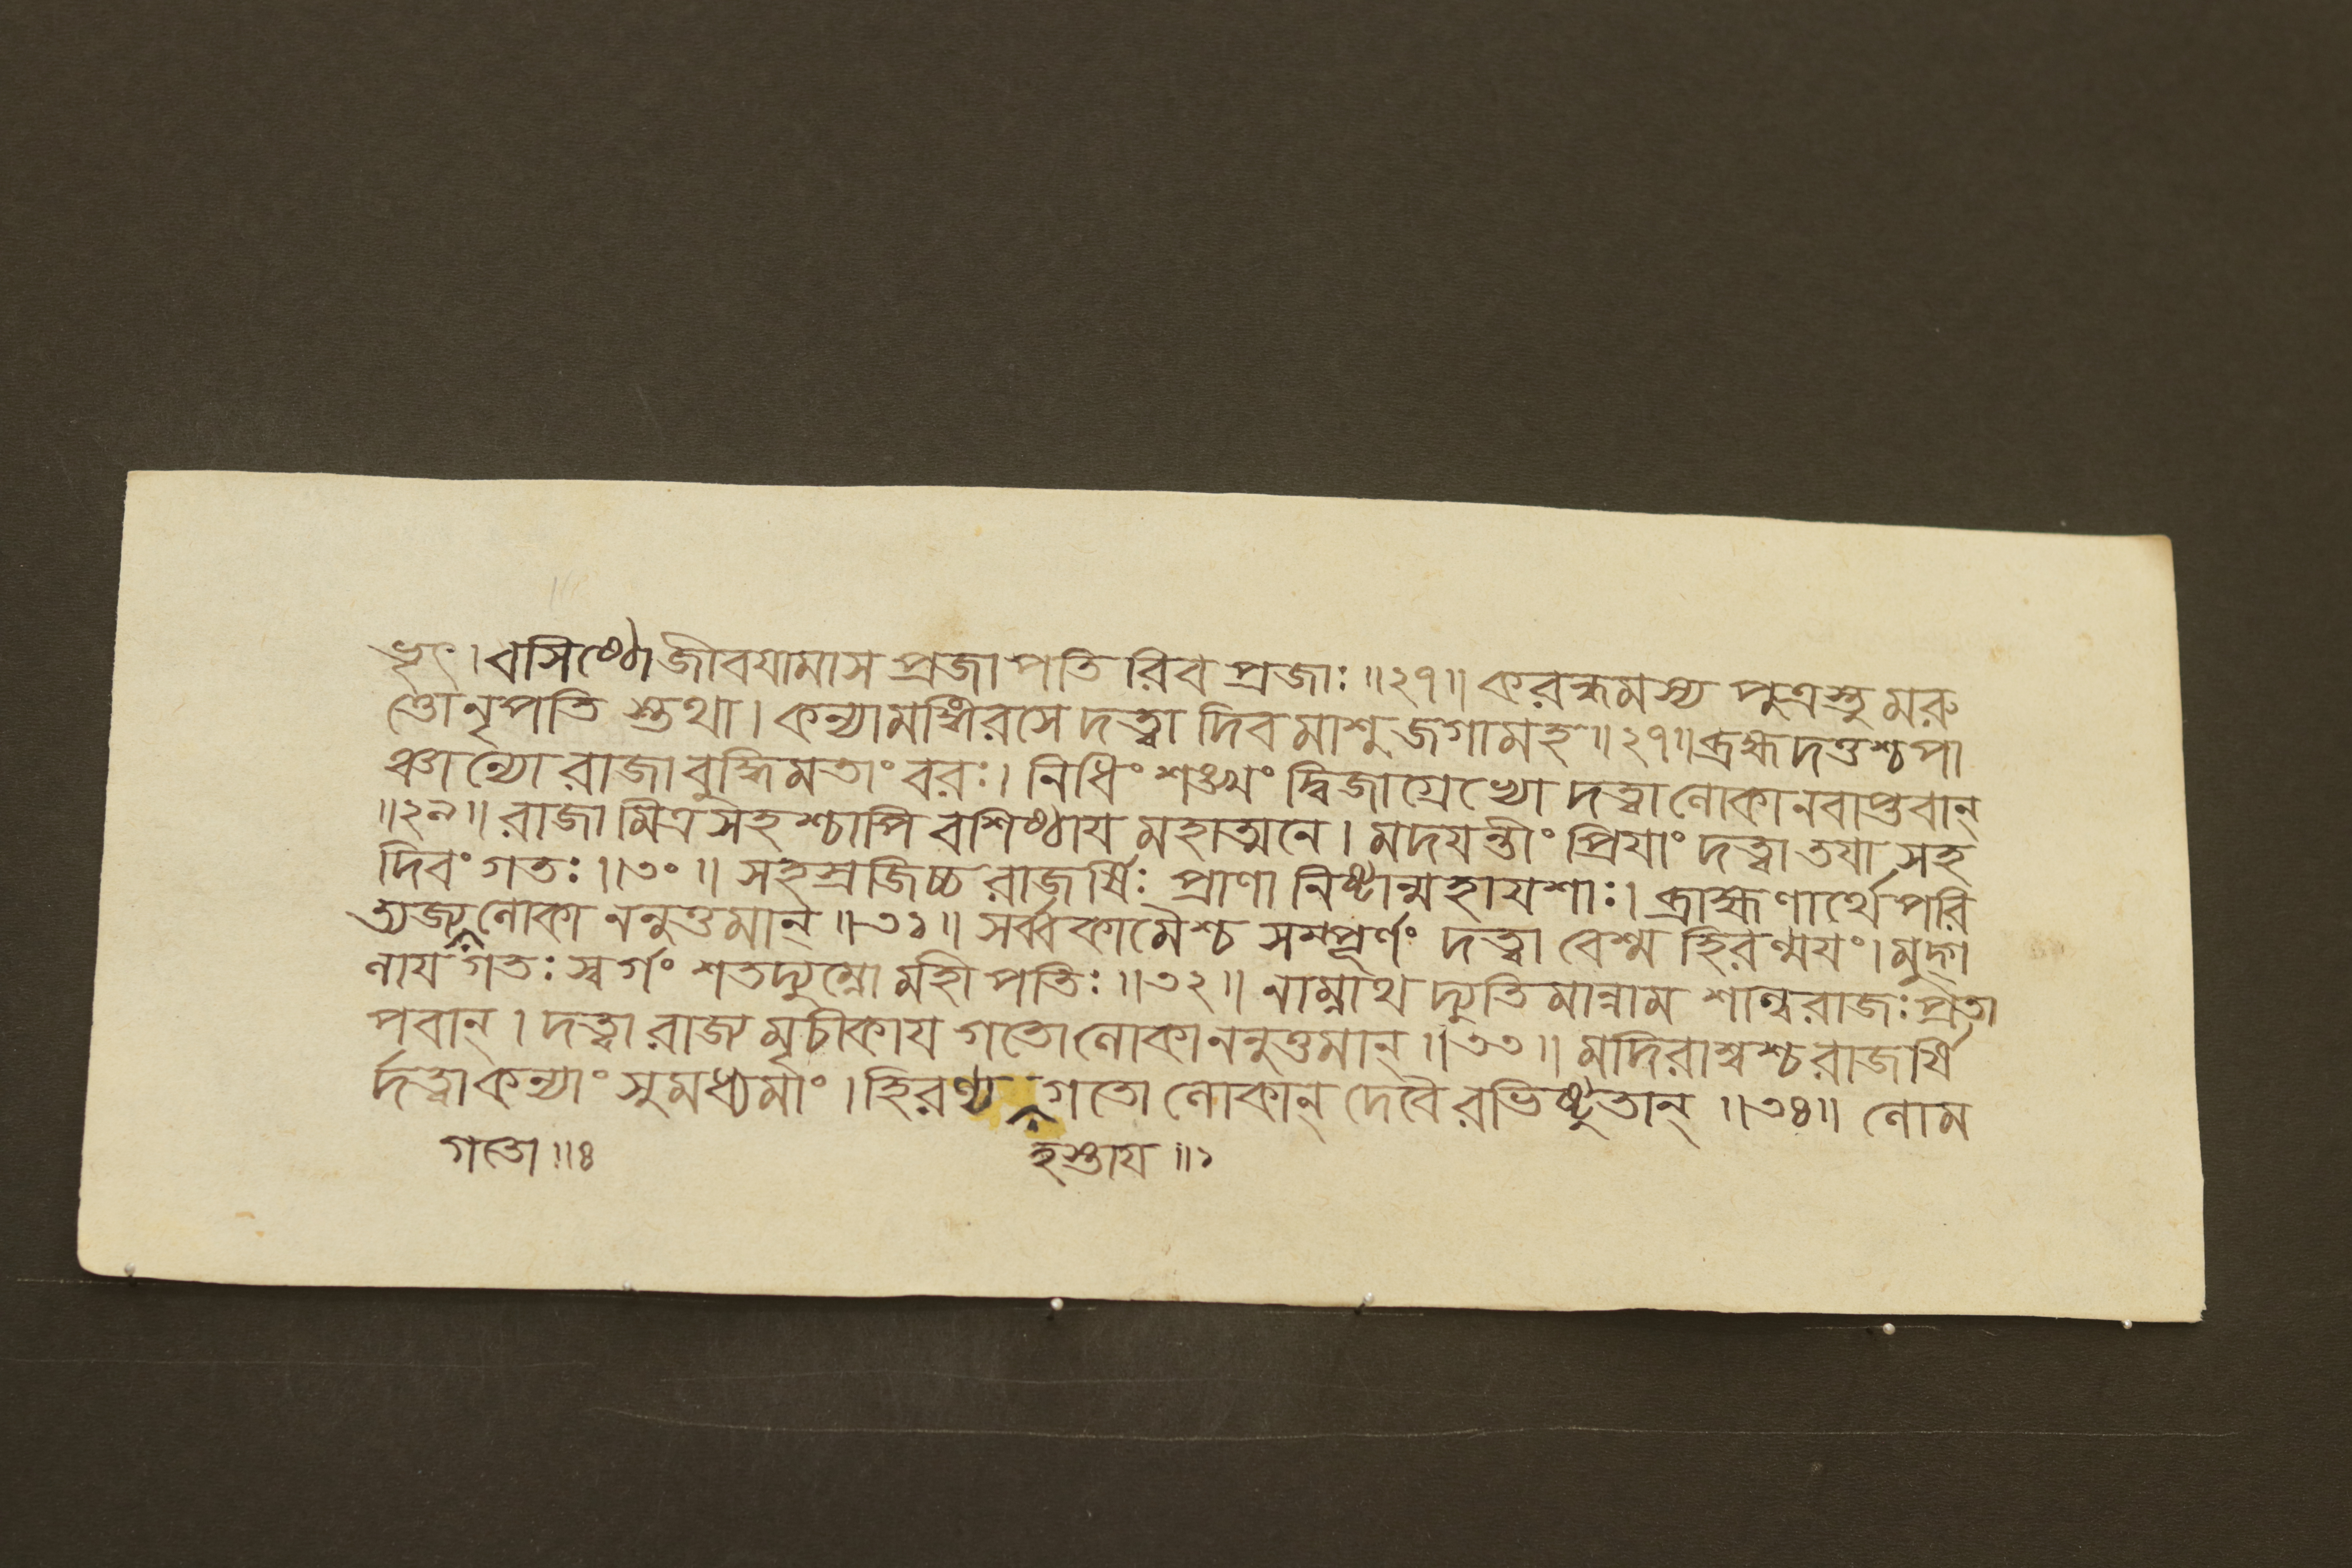 ভৃৎ।বসিষ্ঠোজীবযামাস প্রজাপতি রিব প্রজাঃ॥২৭॥ করন্ধমস্য পুত্রস্তু মরু
ত্তোনৃপতি স্তথা। কন্যামঙ্গিরসে দত্ত্বা দিবমাশু জগামহ॥২৭॥ব্রহ্মদত্তশ্চপা
ঞ্চাল্যো রাজা বুদ্ধিমতাং বরঃ। নিধিং শঙ্খং দ্বিজাগ্রেভ্যো দত্ত্বা লোকানবাপ্তবান্
॥২৯॥ রাজা মিত্রসহশ্চাপি বশিষ্ঠায মহাত্মনে। মদযন্তীং প্রিযাং দত্ত্বা তযা সহ
দিবং গতঃ॥৩০॥ সহস্রজিচ্চ রাজর্ষিঃ প্রাণা নিষ্টান্মহাযশাঃ। ব্রাহ্মণার্থে পরি
ত্যজ্য লোকা ননুত্তমান্॥৩১॥ সর্ব্বকামৈশ্চ সম্পূর্ণং দত্ত্বা বেশ্ম হিরণ্ময়ং। মুদ্গ
লায গতঃ স্বর্গং শতদ্যুম্নো মহীপতিঃ॥৩২॥ নাম্নাথ দ্যুতিমান্নাম শাল্বরাজঃ প্রতা
পবান্। দত্ত্বা রাজ্য মৃচীকায গতো লোকাননুত্তমান্॥৩৩॥ মদিরাশ্বশ্চ রাজর্ষি
র্দত্ত্বা কন্যাং সুমধ্যমাং। হিরণ্য গতো লোকান্ দেবৈরভিষ্টুতান্॥৩৪॥ লোম
গতো॥৪ হস্তায॥১